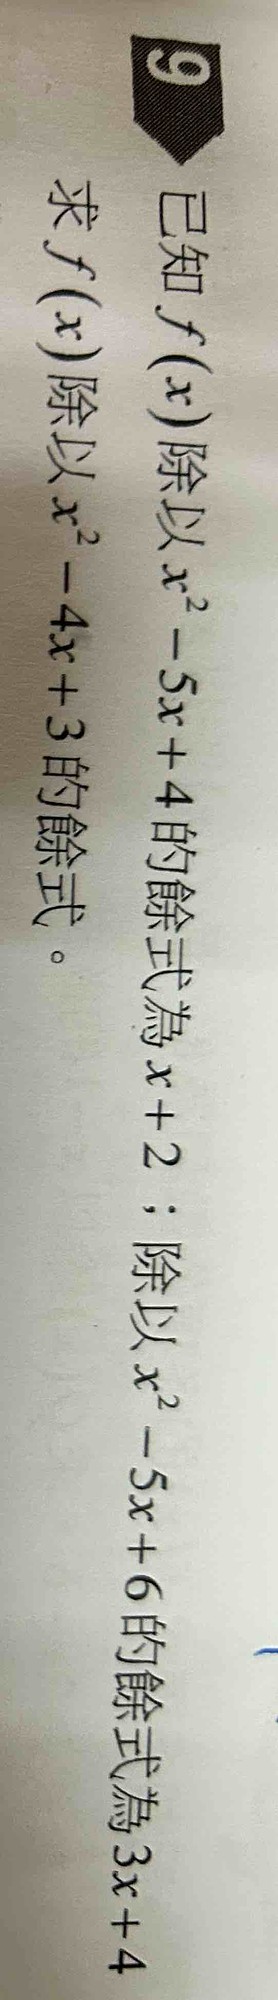 9
已知 f(x) 除以 x² − 5x + 4 的餘式為 x + 2；除以 x² − 5x + 6 的餘式為 3x + 4
求 f(x) 除以 x² − 4x + 3 的餘式。